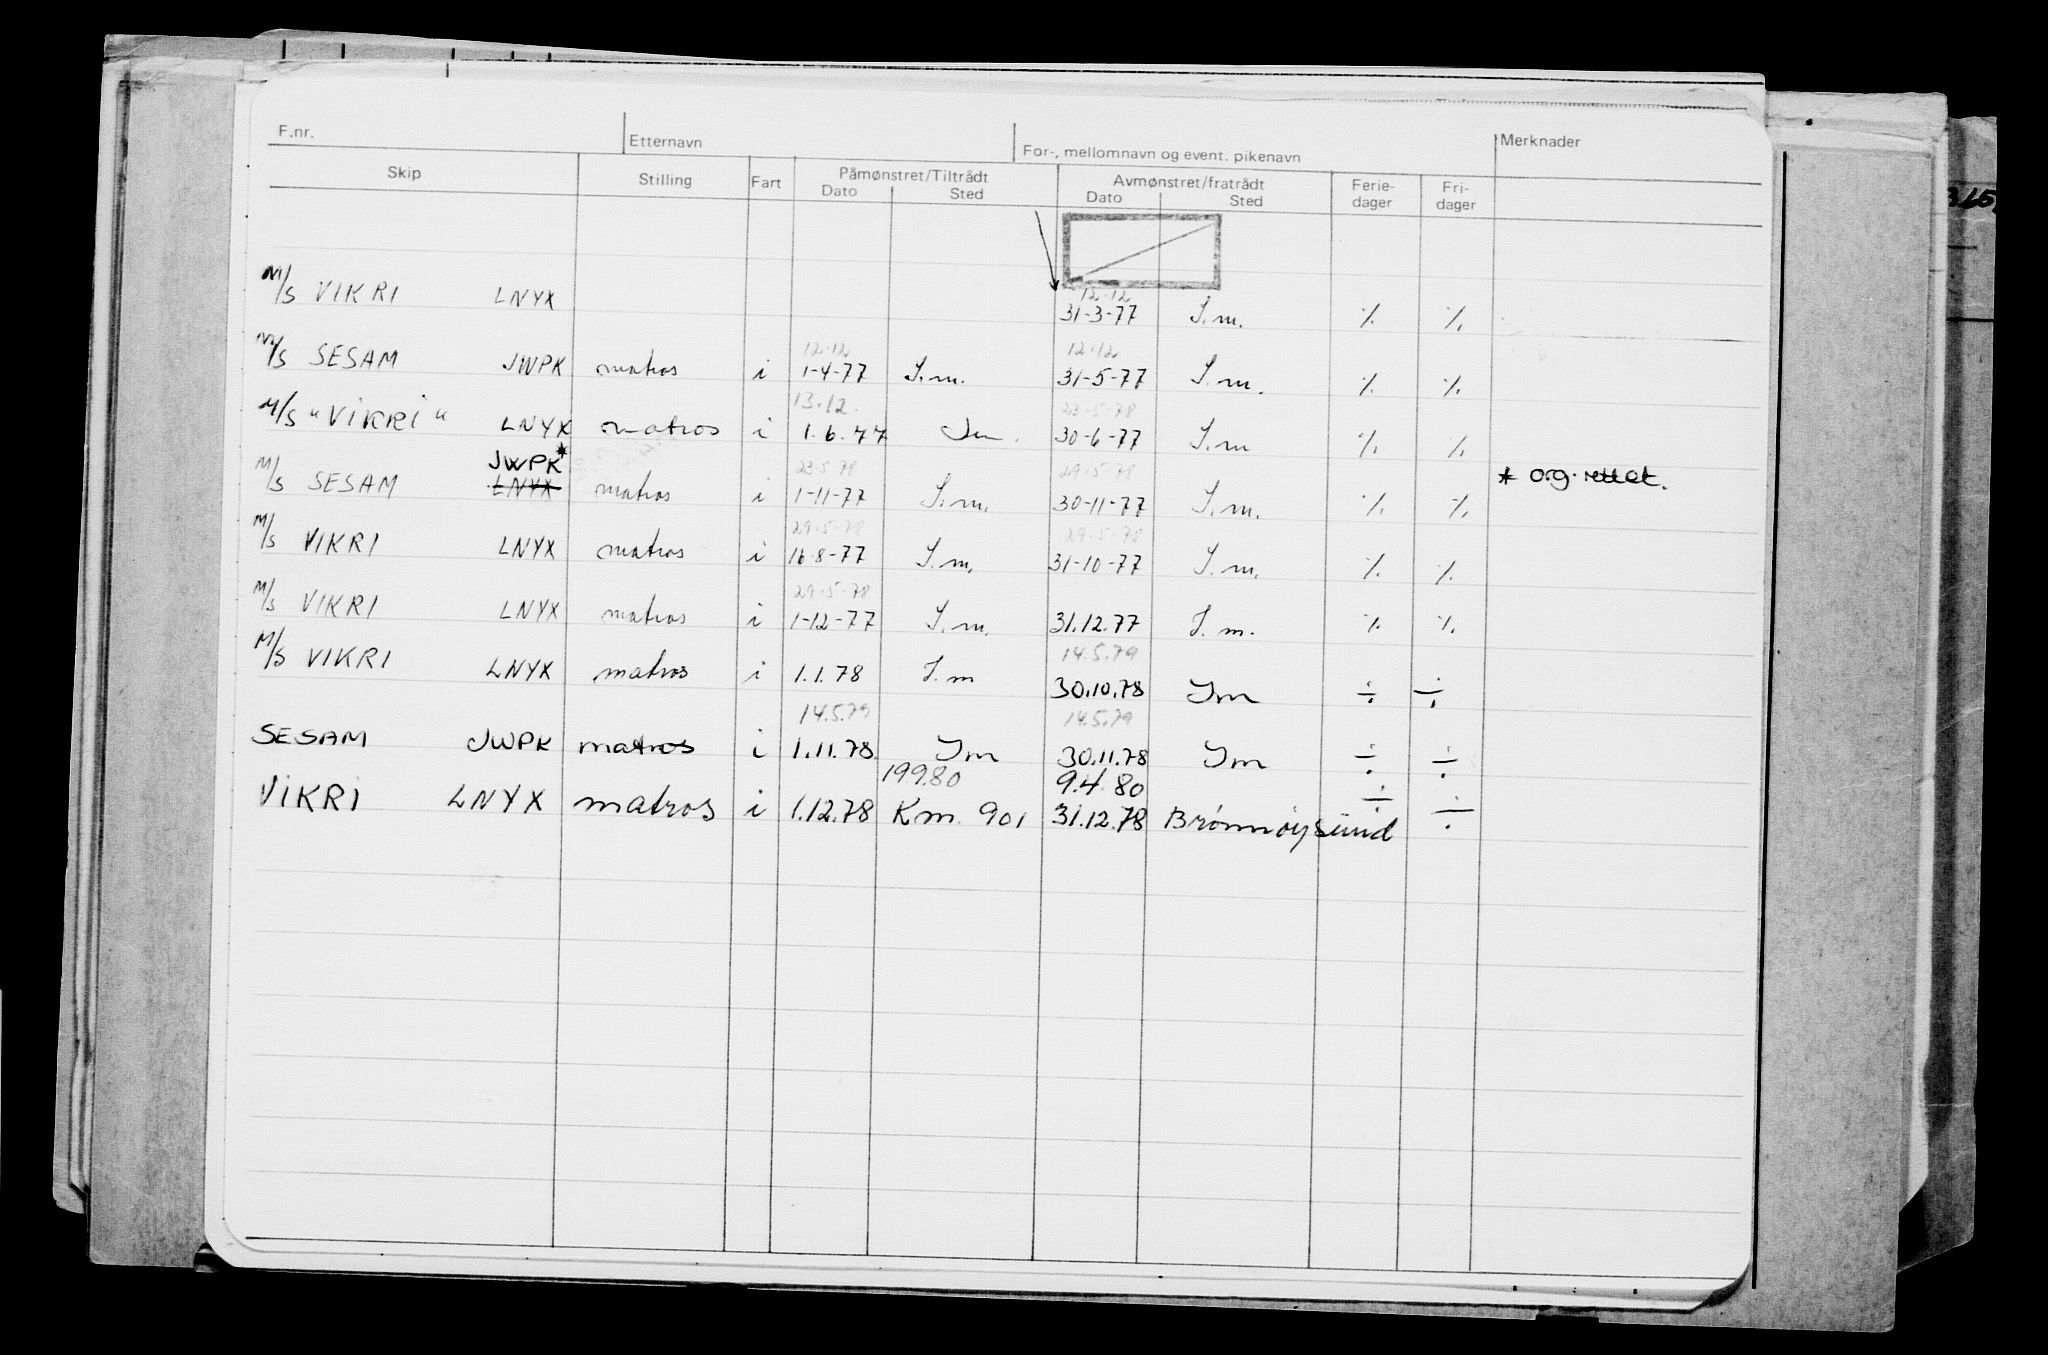 F.nr. Etternavn For-, mellomnavn og event. pikenavn Merknader
Skip Stilling Fart Påmønstret/Tiltrådt Avmønstret/fratrådt Ferie- Fri-
Dato Sted Dato Sted dager dager
12-12
M/S VIKRI LNYX 31-3-77 S.m. ./. ./.
12.12 12.12
M/S SESAM JWPK matros i 1-4-77 S.m. 31-5-77 S.m. ./. ./.
13.12. 23-5-78
M/S "VIKRI" LNYX matros i 1.6.77 Sm. 30-6-77 S.m ./. ./.
JWPK* 23-5-78 29-5-78 * org. rettet.
M/S SESAM LNYX matros i 1-11-77 S.m. 30-11-77 S.m. ./. ./.
29-5-78 29-5-78
M/S VIKRI LNYX matros i 16-8-77 S.m. 31-10-77 S.m. ./. ./.
29-5-78
M/S VIKRI LNYX matros i 1-12-77 S.m. 31.12.77 S.m. ./. ./.
14.5.79
M/S VIKRI LNYX matros i 1.1.78 S.m 30.10.78 Sm ÷ ÷
14.5.79 14.5.79
SESAM JWPK matros i 1.11.78. Sm 30.11.78 Sm ÷ ÷
19.9.80 9.4.80
VIKRI LNYX matros i 1.12.78 Km. 901 31.12.78 Brønnøysund ÷ ÷